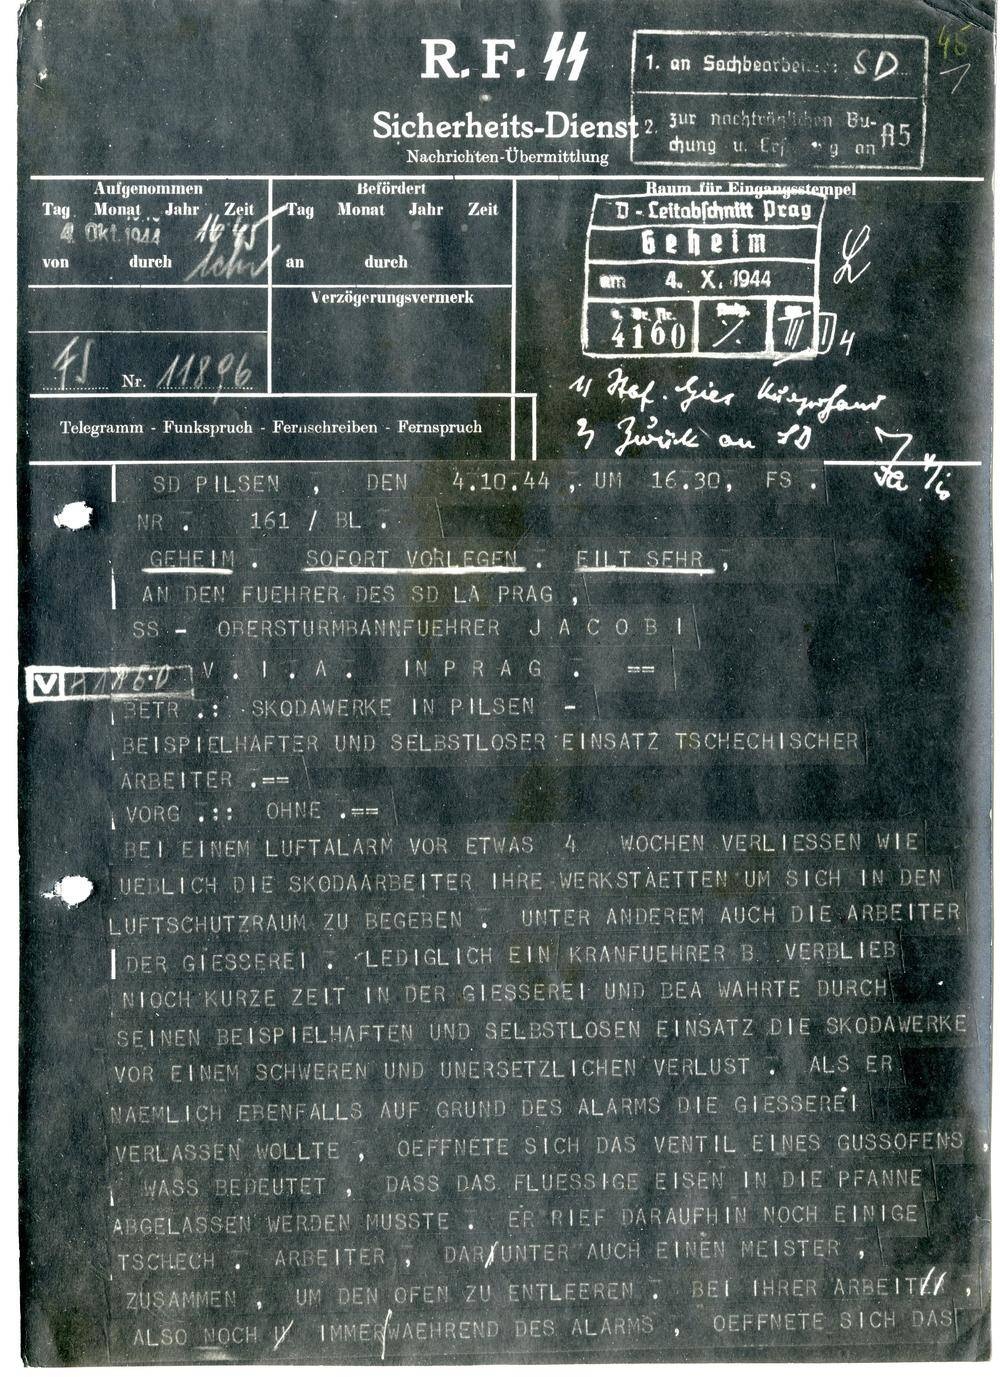 45
R. F. SS
1. an Sachbearbeiter: SD
Sicherheits-Dienst
2. zur nachträglichen Bu-
chung u. Erf g an A5
Nachrichten-Übermittlung
Aufgenommen
Befördert
Raum für Eingangsstempel
Tag Monat Jahr Zeit
Tag Monat Jahr Zeit
4. Okt. 1944 16 45
D - Leitabschnitt Prag
Geheim
von durch
an durch
am 4. X. 1944
Verzögerungsvermerk
4160 III D 4
FS Nr. 11896
2) Zurück an SD
Telegramm - Funkspruch - Fernschreiben - Fernspruch
SD PILSEN , DEN 4.10.44 , UM 16.30, FS .
NR . 161 / BL .
GEHEIM . SOFORT VORLEGEN . EILT SEHR ,
AN DEN FUEHRER DES SD LA PRAG ,
SS - OBERSTURMBANNFUEHRER J A C O B I
V . I . A . IN P R A G . ==
V
BETR .: SKODAWERKE IN PILSEN -
BEISPIELHAFTER UND SELBSTLOSER EINSATZ TSCHECHISCHER
ARBEITER .==
VORG .:: OHNE .==
BEI EINEM LUFTALARM VOR ETWAS 4 WOCHEN VERLIESSEN WIE
UEBLICH DIE SKODAARBEITER IHRE WERKSTAETTEN UM SICH IN DEN
LUFTSCHUTZRAUM ZU BEGEBEN . UNTER ANDEREM AUCH DIE ARBEITER
DER GIESSEREI . LEDIGLICH EIN KRANFUEHRER B VERBLIEB
NIOCH KURZE ZEIT IN DER GIESSEREI UND BEA WAHRTE DURCH
SEINEN BEISPIELHAFTEN UND SELBSTLOSEN EINSATZ DIE SKODAWERKE
VOR EINEM SCHWEREN UND UNERSETZLICHEN VERLUST . ALS ER
NAEMLICH EBENFALLS AUF GRUND DES ALARMS DIE GIESSEREI
VERLASSEN WOLLTE , OEFFNETE SICH DAS VENTIL EINES GUSSOFENS ,
WASS BEDEUTET , DASS DAS FLUESSIGE EISEN IN DIE PFANNE
ABGELASSEN WERDEN MUSSTE . ER RIEF DARAUFHIN NOCH EINIGE
TSCHECH . ARBEITER , DAR/UNTER AUCH EINEN MEISTER ,
ZUSAMMEN , UM DEN OFEN ZU ENTLEEREN . BEI IHRER ARBEIT ,
ALSO NOCH IMMER WAEHREND DES ALARMS , OEFFNETE SICH DAS